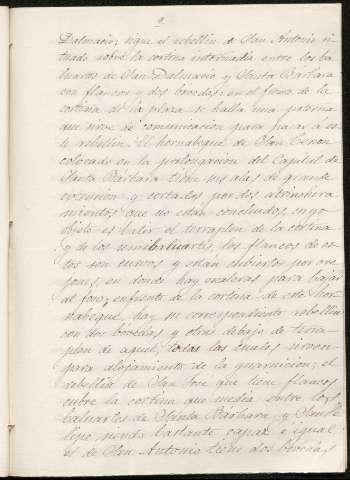 2
Dalmacio; sigue el rebellin de San Antonio si-
tuado sobre la cortina intermedia entre los ba-
luartes de San Dalmacio y Santa Bárbara
con flancos y dos bovedas: en el fosso de la
cortina de la plaza se halla una poterna
que sirve de comunicacion para pasar á es-
te rebellin. El hornabeque de San Zenon
colocado en la prolongacion del Capital de
Santa Bárbara tiene sus alas de grande
extension y cortados por dos atrinchera
mientos que no estan concluidos, cuyo
objeto es batir el terraplen de la cortina
y de los semibaluartes, los flancos de es-
tos son curvos y están cubiertos por ore
jones, en donde hay escaleras para bajar
al foso; enfrente de la cortina de este hor-
nabeque, hay su correspondiente rebellin
con dos bovedas y otras debajo de terra-
plen de aquel, todas las cuales sirven
para alojamiento de la guarnicion; el
rebellin de San Jose que tiene flancos
cubre la cortina que media entre los
baluartes de Santa Bárbara y San Fe
lipe siendo bastante capaz é igual
al de San Antonio tiene dos bovedas,